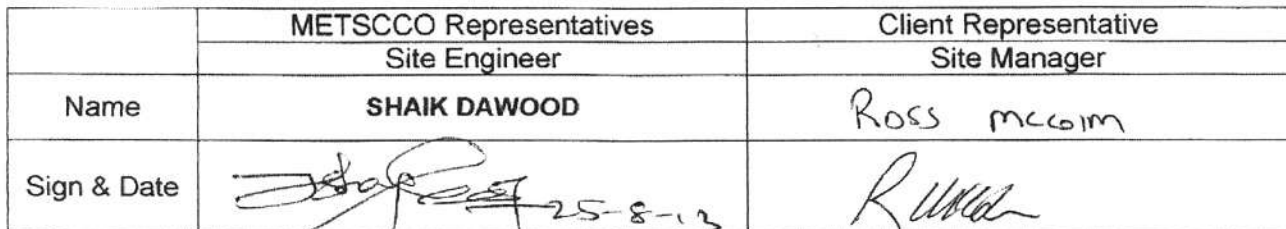 METSCCO Representatives Client Representative
Site Engineer Site Manager
Name SHAIK DAWOOD Ross
Sign & Date 25-8-13